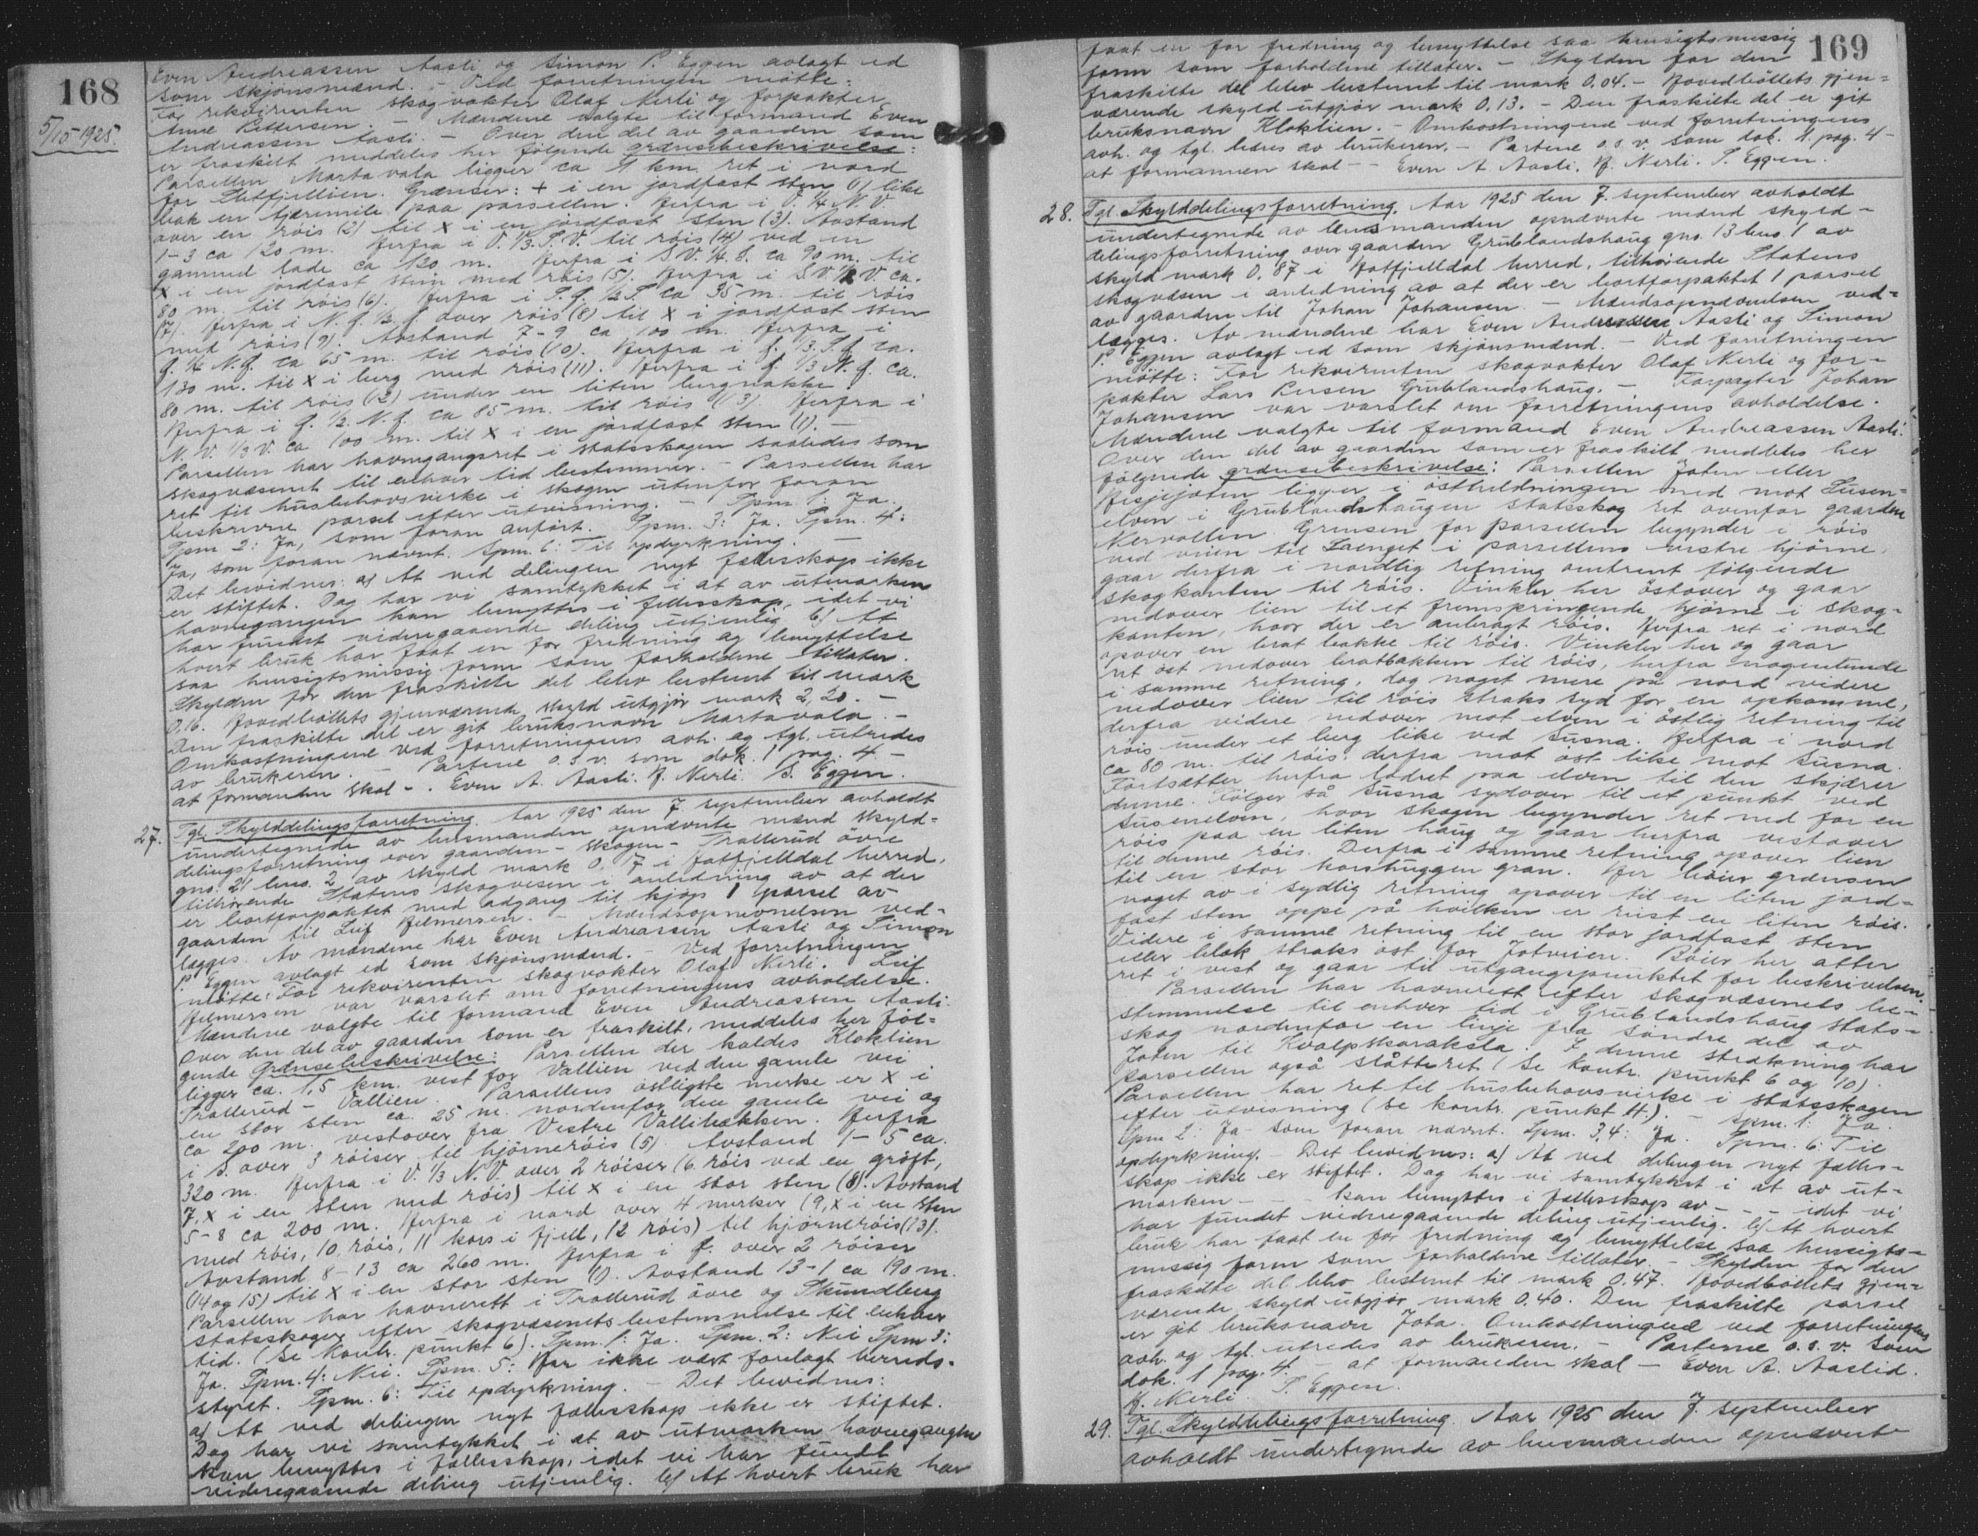 168
5/15 1925.
Even Andreassen Aasli og Simon P. Eggen avlagt ed
som skjønsmænd. - Ved forretningen møtte:
For rekvirenten skogvokter Olaf Nerli og forpakter
Arne Pettersen. - Mændene valgte til formand Even
Andreassen Aasli. - Over den del av gaarden som
er fraskilt meddeles her følgende grænsebeskrivelse:
Parsellen Martavala ligger ca 4 km. ret i nord
for Slutfjellien. Grænser: + i en jordfast sten (1) like
bak en tjæremile paa parsellen. Herfra i V. ¼ N.V.
over en röis (2) til x i en jordfast sten (3). Avstand
1-3 ca 120 m. Herfra i V. ⅓ S.V. til röis (4) ved en
gammel lade ca 120 m. Herfra i S.V. ¼ S. ca 90 m. til
x i en jordfast sten med röis (5). Herfra i S.V. ½ V. ca.
80 m. til röis (6). Herfra i S.Ø. ½ S. ca 35 m. til röis
(7). Herfra i N.Ø. ½ Ø. over röis (8) til x i jordfast sten
med röis (9). Avstand 7-9 ca 100 m. Herfra i
Ø. ¼ N.Ø. ca 65 m. til röis (10). Herfra i Ø. ⅓ S.Ø. ca.
130 m. til x i berg med röis (11). Herfra i Ø. ⅓ N.Ø. ca.
80 m. til röis (12) under en liten bergnakke.
Herfra i Ø. ½ N.Ø. ca 85 m. til röis (13). Herfra i
N.V. ⅓ V. ca 100 m. til x i en jordfast sten (1). -
Parsellen har havnegangsret i statsskogen saaledes som
skogvæsenet til enhver tid bestemmer. - Parsellen har
ret til husbehovsvirke i skogen utenfor foran
beskrivne parsel efter utvisning. - Spm. 1: Ja.
Spm 2: Ja, som foran anført. Spm. 3: Ja. Spm. 4:
Ja, som foran nævnt. Spm. 6: Til opdyrkning. -
Det bevidnes: a) At ved delingen nyt fællesskap ikke
er stiftet. Dog har vi samtykket i at av utmarken
havnegangen kan benyttes i fellesskap, idet vi
har fundet videregaaende deling utjenlig. b) At
hvert bruk har faat en for fredning og benyttelse
saa hensigtsmæssig form som forholdene tillater.
Skylden for den fraskilte del blev bestemt til mark
0,16. Hovedbøllets gjenværende skyld utgjør mark 2,20. -
Den fraskilte del er git bruksnavn Martavala. -
Omkostningene ved forretningens avh. og tgl. utredes
av brukeren. - Partene o.s.v. som dok. 1 pag. 4 -
at formanden skal -. Even A. Aasli. H. Nerli. S. Eggen.
27. Tgl. Skylddelingsforretning. Aar 1925 den 7 september avholdt
undertegnede av lensmanden opnævnte mænd skyld-
delingsforretning over gaarden - skogen - Trallerud övre
gno. 21 bno. 2 av skyld mark 0.17 i Hatfjelldal herred,
tilhørende Statens skogvesen i anledning av at der
er bortforpaktet med adgang til kjøp 1 parsel av
gaarden til Leif Hilmersen. - Mændsopnevnelsen ved-
lægges. Av mændene har Even Andreassen Aasli og Simon
P. Eggen avlagt ed som skjønsmænd. - Ved forretningen
møtte: For rekvirenten skogvokter Olaf Nerli. Leif
Hilmersen var varslet om forretningens avholdelse.
Mændene valgte til formand Even Andreassen Aasli.
Over den del av gaarden som er fraskilt, meddeles her föl-
gende Grænsebeskrivelse: Parsellen der kaldes Kloklien
ligger ca. 1,5 km. vest for Vallien ved den gamle vei
Trallerud - Vallien. Parsellens østligste merke er x i
en stor sten ca. 25 m. nordenfor den gamle vei og
ca 200 m. vestover fra Vestre Vallibækken. Herfra
i S. over 3 röiser til hjørneröis (5). Avstand 1-5 ca.
320 m. Herfra i V. ⅓ N.V. over 2 röiser (6. röis ved en grøft,
7, x i en sten med röis) til x i en stor sten (8). Avstand
5-8 ca 200 m. Herfra i nord over 4 merker (9, x i en sten
med röis, 10, röis, 11 kors i fjell, 12 röis) til hjørneröis (13).
Avstand 8-13 ca 260 m. Herfra i Ø. over 2 röiser
(14 og 15) til x i en stor sten (1). Avstand 13-1 ca 190 m.
Parsellen har havnerett i Trallerud övre og Skundberg
statsskoger efter skogvæsenets bestemmelse til enhver
tid. (Se Kontr. punkt 6). Spm. 1: Ja. Spm. 2: Nei Spm 3:
Ja. Spm. 4: Nei. Spm. 5: Har ikke vært forelagt herreds-
styret. Spm. 6: Til opdyrkning. - Det bevidnes:
a) At ved delingen nyt fællesskap ikke er stiftet.
Dog har vi samtykket i at av utmarken havnegangen
kan benyttes i fællesskap, idet vi har fundet
videregaaende deling utjenlig. b) At hvert bruk har
169
faat en for fredning og benyttelse saa hensigtsmæssig
form som forholdene tillater. - Skylden for den
fraskilte del blev bestemt til mark 0,04. - Hovedbøllets gjen-
værende skyld utgjør mark 0.13. - Den fraskilte del er git
bruksnavn Kloklien. - Omkostningene ved forretningens
avh. og tgl. bæres av brukeren. - Partene o.s.v. som dok. 1 pag. 4 -
at formannen skal - Even A Aasli. H. Nerli. S. Eggen.
28. Tgl. Skylddelingsforretning. Aar 1925 den 7. september avholdt
undertegnede av lensmanden opnævnte mænd skyld-
delingsforretning over gaarden Grublandshaug gno. 13 bno. 1 av
skyld mark 0.87 i Hatfjelldal herred, tilhørende Statens
skogvæsen i anledning av at der er bortforpaktet 1 parsel
av gaarden til Johan Johansen. - Mændsopnævnelsen ved-
lægges. Av mændene har Even Andreassen Aasli og Simon
P. Eggen avlagt ed som skjønsmænd. - Ved forretningen
møtte: For rekvirenten skogvokter Olaf Nerli og for-
pakter Lars Larsen Grublandshaug. - Forpagter Johan
Johansen var varslet om forretningens avholdelse.
Mændene valgte til formand Even Andreassen Aasli.
Over den del av gaarden som er fraskilt meddeles her
følgende grænsebeskrivelse: Parsellen Joten eller
ligger i östheldningen ned mot Susen-
elven i Grublandshaugen statsskog ret ovenfor gaarden
Kervollen. Grensen for parsellen begynder i röis
ved veien til i parsellens vestre hjørne,
gaar derfra i nordlig retning omtrent følgende
skogkanten til röis. Vinkler her östover og gaar
nedover lien til et fremspringende hjørne i skog-
kanten, hvor der er anbragt röis. Herfra ret i nord
opover en brat bakke til röis. Vinkler her og gaar
ret øst nedover bratbakken til röis, herfra nogenlunde
i samme retning, dog noget mere på nord videre
nedover lien til röis straks syd for en opkomme,
derfra videre nedover mot elven i östlig retning til
röis under et berg like ved Susna. Herfra i nord
ca 80 m. til röis, derfra mot øst like mot Susna.
Fortsætter herfra lodret paa elven til den skjærer
denne. Følger så Susna sydover til et punkt ved
Susenelven, hvor skogen begynder ret ned for en
röis paa en liten haug og gaar herfra vestover
til denne röis. Derfra i samme retning opover lien
til en stor korshuggen gran. Her böier grænsen
noget av i sydlig retning opover til en liten jord-
fast sten oppe på hvilken er reist en liten röis.
Videre i samme retning til en stor jordfast sten
eller blok straks öst for Jotveien. Böier her atter
ret i vest og gaar til utgangspunktet for beskrivelsen.
Parsellen har havnerett efter skogvæsenets be-
stemmelse til enhver tid i Grublandshaug stats-
skog nordenfor en linje fra söndre del av
Joten til Kvalpskaraksla. I denne strækning har
parsellen også slåtteret (Se kontr. punkt 6 og 10).
Parsellen har ret til husbehovsvirke i statsskogen
efter utvisning (Se kontr. punkt 4). - Spm. 1: Ja.
Spm 2: Ja som foran nævnt. Spm. 3,4: Ja. Spm. 6: Til
opdyrkning. - Det bevidnes: a) At ved delingen nyt fælles-
skap ikke er stiftet. Dog har vi samtykket i at av ut-
marken - - - kan benyttes i fællesskap av - - - idet vi
har fundet videregaaende deling utjenlig. b) At hvert
bruk har faat en for fredning og benyttelse saa hensigts-
mæssig form som forholdene tillater. - Skylden for den
fraskilte del blev bestemt til mark 0.47. Hovedbøllets gjen-
værende skyld utgjør mark 0.40. Den fraskilte parsel
er git bruksnavn Jota. Omkostningene ved forretningens
avh. og tgl. utredes av brukeren. - Parterne o.s.v. som
dok. 1 pag. 4. - at formanden skal - Even A. Aaslid.
H. Nerli. S. Eggen.
29. Tgl. Skylddelingsforretning. Aar 1925 den 7. september
avholdt undertegnede av lensmanden opnævnte